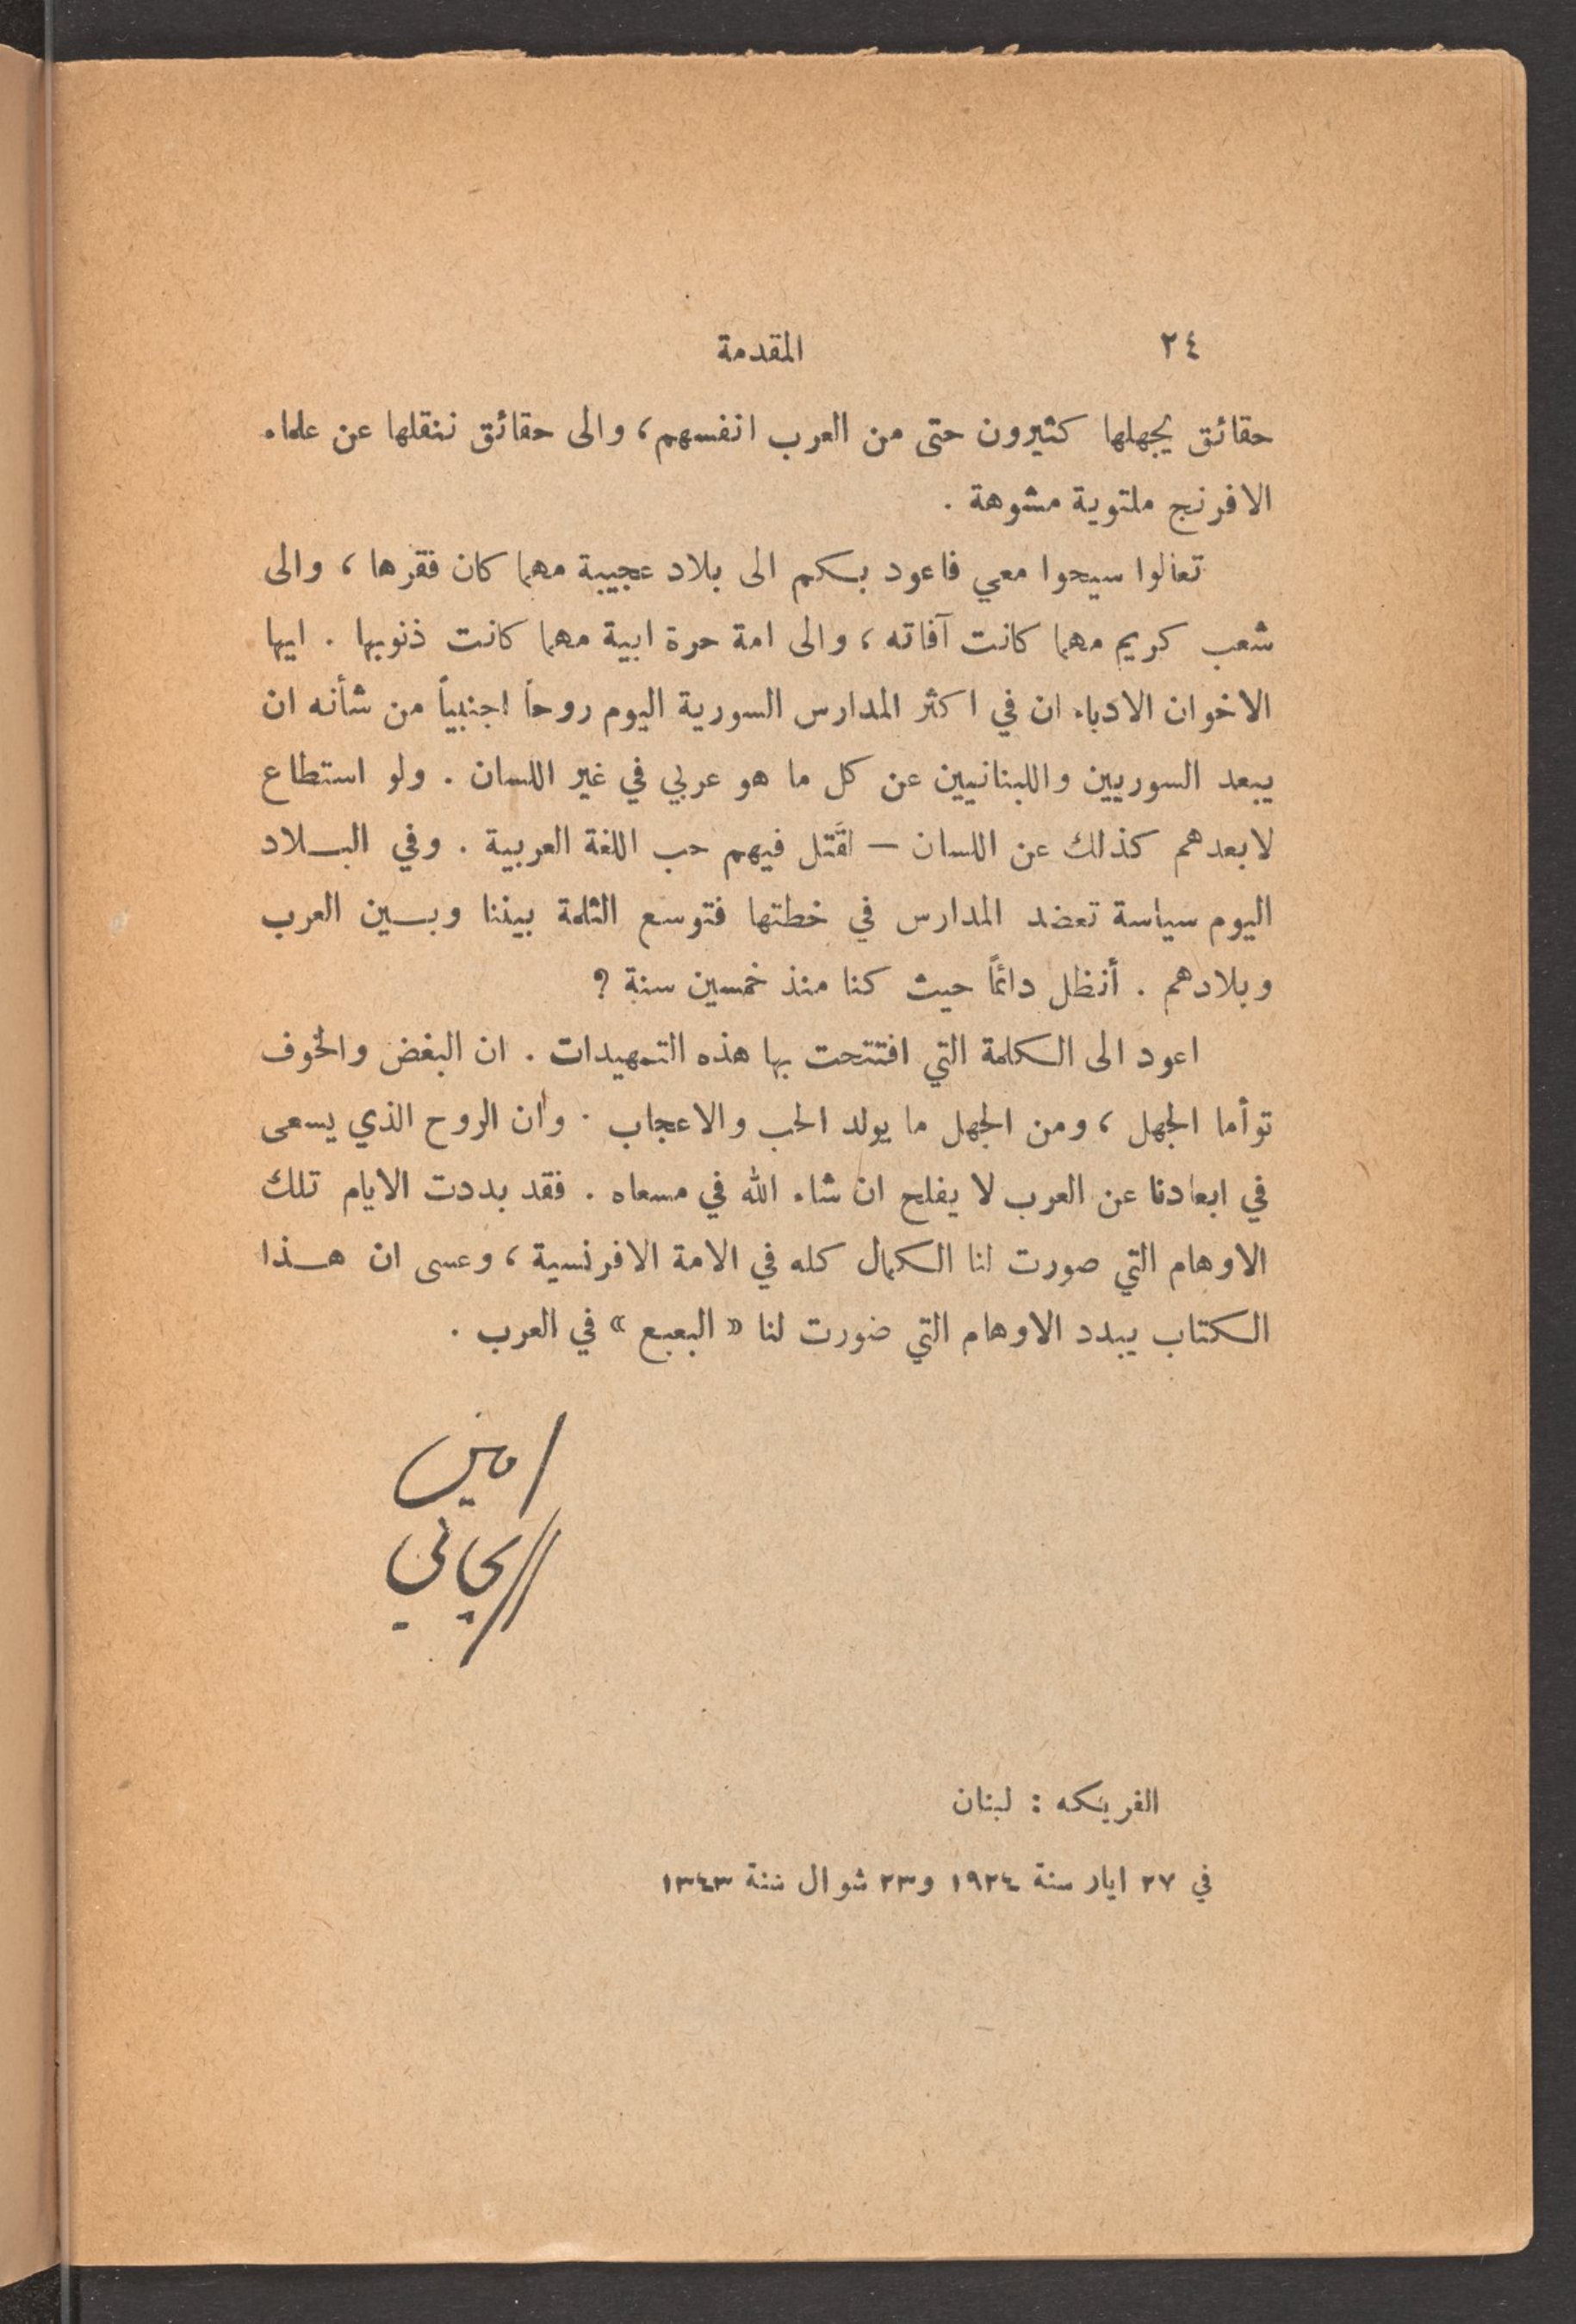 ٢٤ المقدمة
حقائق يجهلها كثيرون حتى من العرب انفسهم، والى حقائق ننقلها عن علماء
الافرنج ملتوية مشوهة .
تعالوا سيحوا معي فاعود بكم الى بلاد عجيبة مهما كان فقرها ، والى
شعب كريم مهما كانت آفاته ، والى امة حرة ابية مهما كانت ذنوبها . ايها
الاخوان الادباء ان في اكثر المدارس السورية اليوم روحاً اجنبياً من شأنه ان
يبعد السوريين واللبنانيين عن كل ما هو عربي في غير اللسان . ولو استطاع
لابعدهم كذلك عن اللسان — لقَتل فيهم حب اللغة العربية . وفي البلاد
اليوم سياسة تعضد المدارس في خطتها فتوسع الثلمة بيننا وبين العرب
وبلادهم . أنظل دائماً حيث كنا منذ خمسين سنة ؟
اعود الى الكلمة التي افتتحت بها هذه التمهيدات . ان البغض والخوف
توأما الجهل ، ومن الجهل ما يولد الحب والاعجاب . وان الروح الذي يسعى
في ابعادنا عن العرب لا يفلح ان شاء الله في مسعاه . فقد بددت الايام تلك
الاوهام التي صورت لنا الكمال كله في الامة الافرنسية ، وعسى ان هذا
الكتاب يبدد الاوهام التي صورت لنا « البعبع » في العرب .
امين
الريحاني
الفريكه : لبنان
في ٢٧ ايار سنة ١٩٢٤ و٢٣ شوال سنة ١٣٤٣